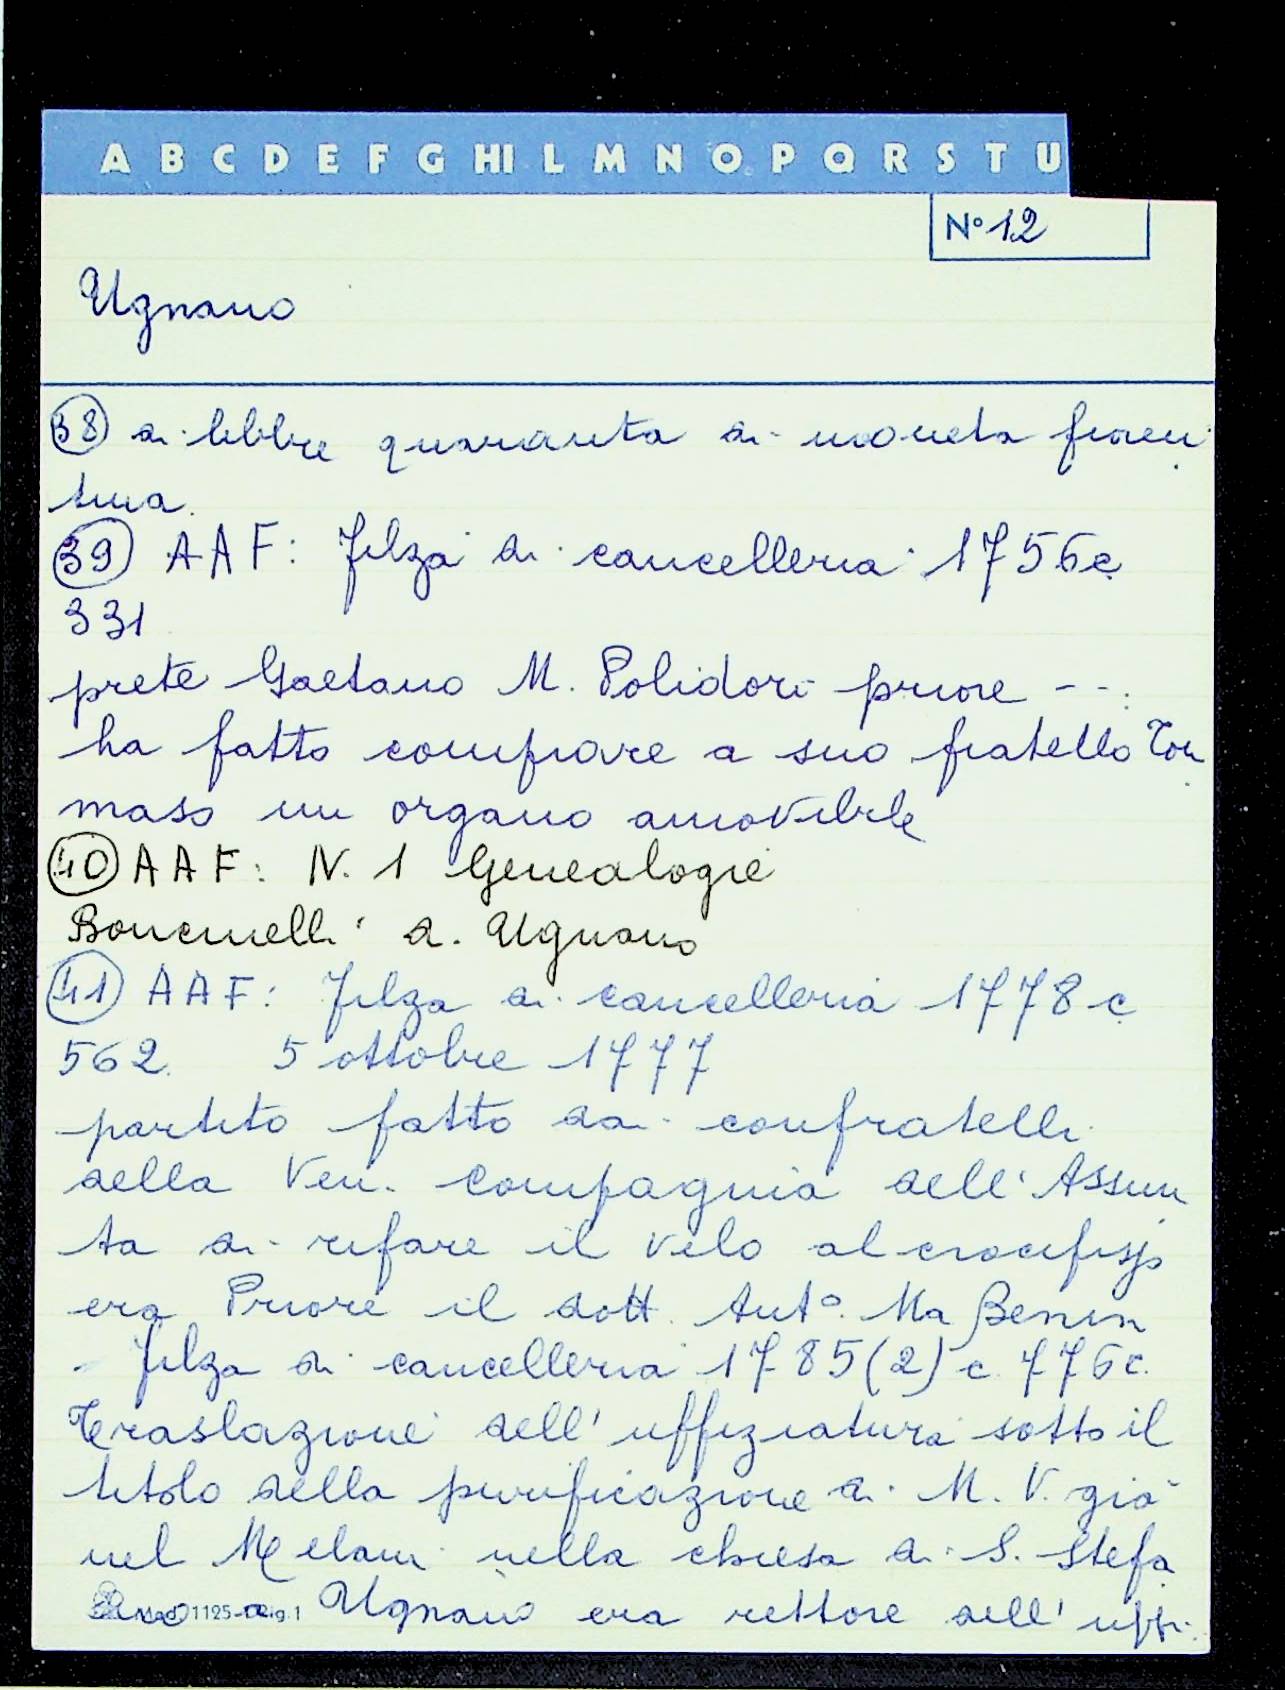 A B C D E F G HI L M N O P Q R S T U
N° 12
Ugnano
38 di libbre quaranta di moneta fioren
tina.
39 AAF: Filza di cancelleria 1756 c
331
prete Gaetano M. Polidori priore - - :
ha fatto comprare a suo fratello Tom
maso un organo amovibile
40 AAF: N. 1 Genealogie
Boncinelli di Ugnano
41 AAF: Filza di cancelleria 1778 c
562. 5 ottobre 1777
partito fatto dai confratelli
della Ven. Compagnia dell'Assun
ta di rifare il velo al crocefisso
era Priore il dott. Ant°. Ma Benin
- Filza di cancelleria 1785(2) c. 776c.
Traslazione dell'uffiziatura sotto il
titolo della purificazione di M. V. già
nel Melani nella chiesa di S. Stefa
no a Ugnano era rettore dell'uffi-
1125